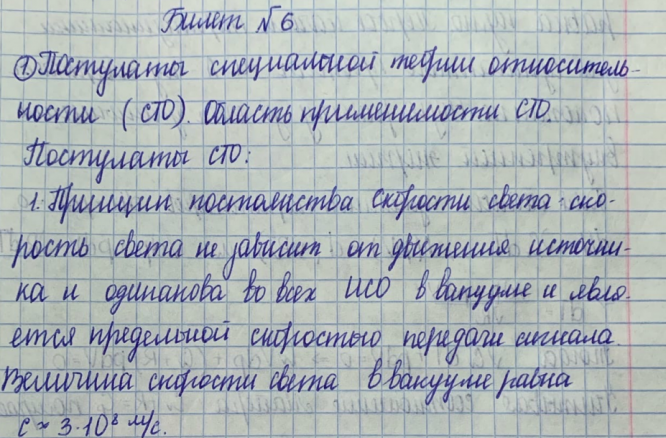 Билет №6
① Постулаты специальной теории относитель-
ности (СТО). Область применимости СТО.
Постулаты СТО:
1. Принцип постоянства скорости света: ско-
рость света не зависит от движения источни-
ка и одинакова во всех ИСО в вакууме и явля-
ется предельной скоростью передачи сигнала.
Величина скорости света в вакууме равна
c ≈ 3·10⁸ м/с.